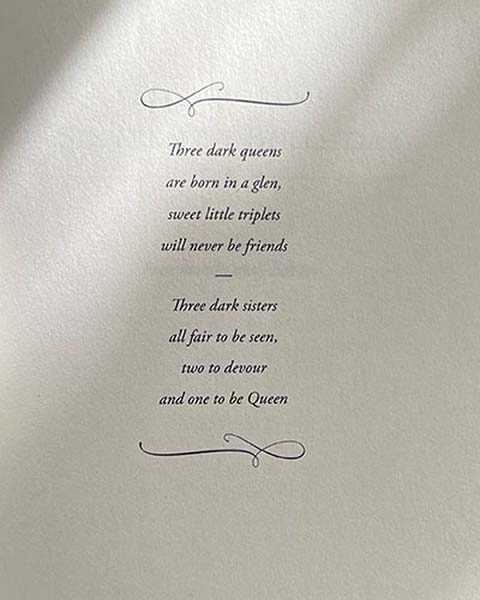 Three dark queens
are born in a glen,
sweet little triplets
will never be friends
—
Three dark sisters
all fair to be seen,
two to devour
and one to be Queen